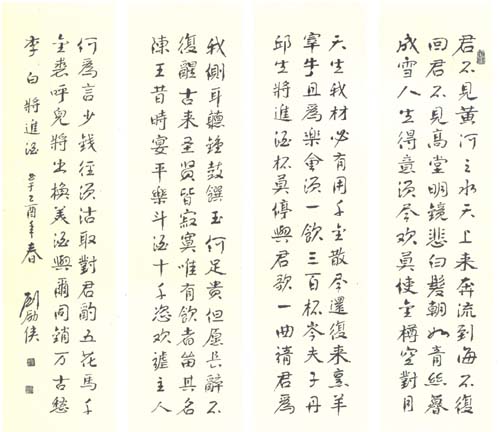 君不見黄河之水天上来奔流到海不復
回君不見高堂明鏡悲白髮朝如青絲暮
成雪人生得意須尽欢莫使金樽空對月
天生我材必有用千金散尽還復来烹羊
宰牛且為樂會須一飲三百杯岑夫子丹
邱生將進酒杯莫停與君歌一曲請君為
我側耳聽鐘鼓饌玉何足貴但愿長醉不
復醒古来圣賢皆寂寞唯有飲者留其名
陳王昔時宴平樂斗酒十千恣欢謔主人
何為言少錢徑須沽取對君酌五花馬千
金裘呼兒將出換美酒與爾同銷万古愁
李白將進酒 书于乙酉年春 劉励俠